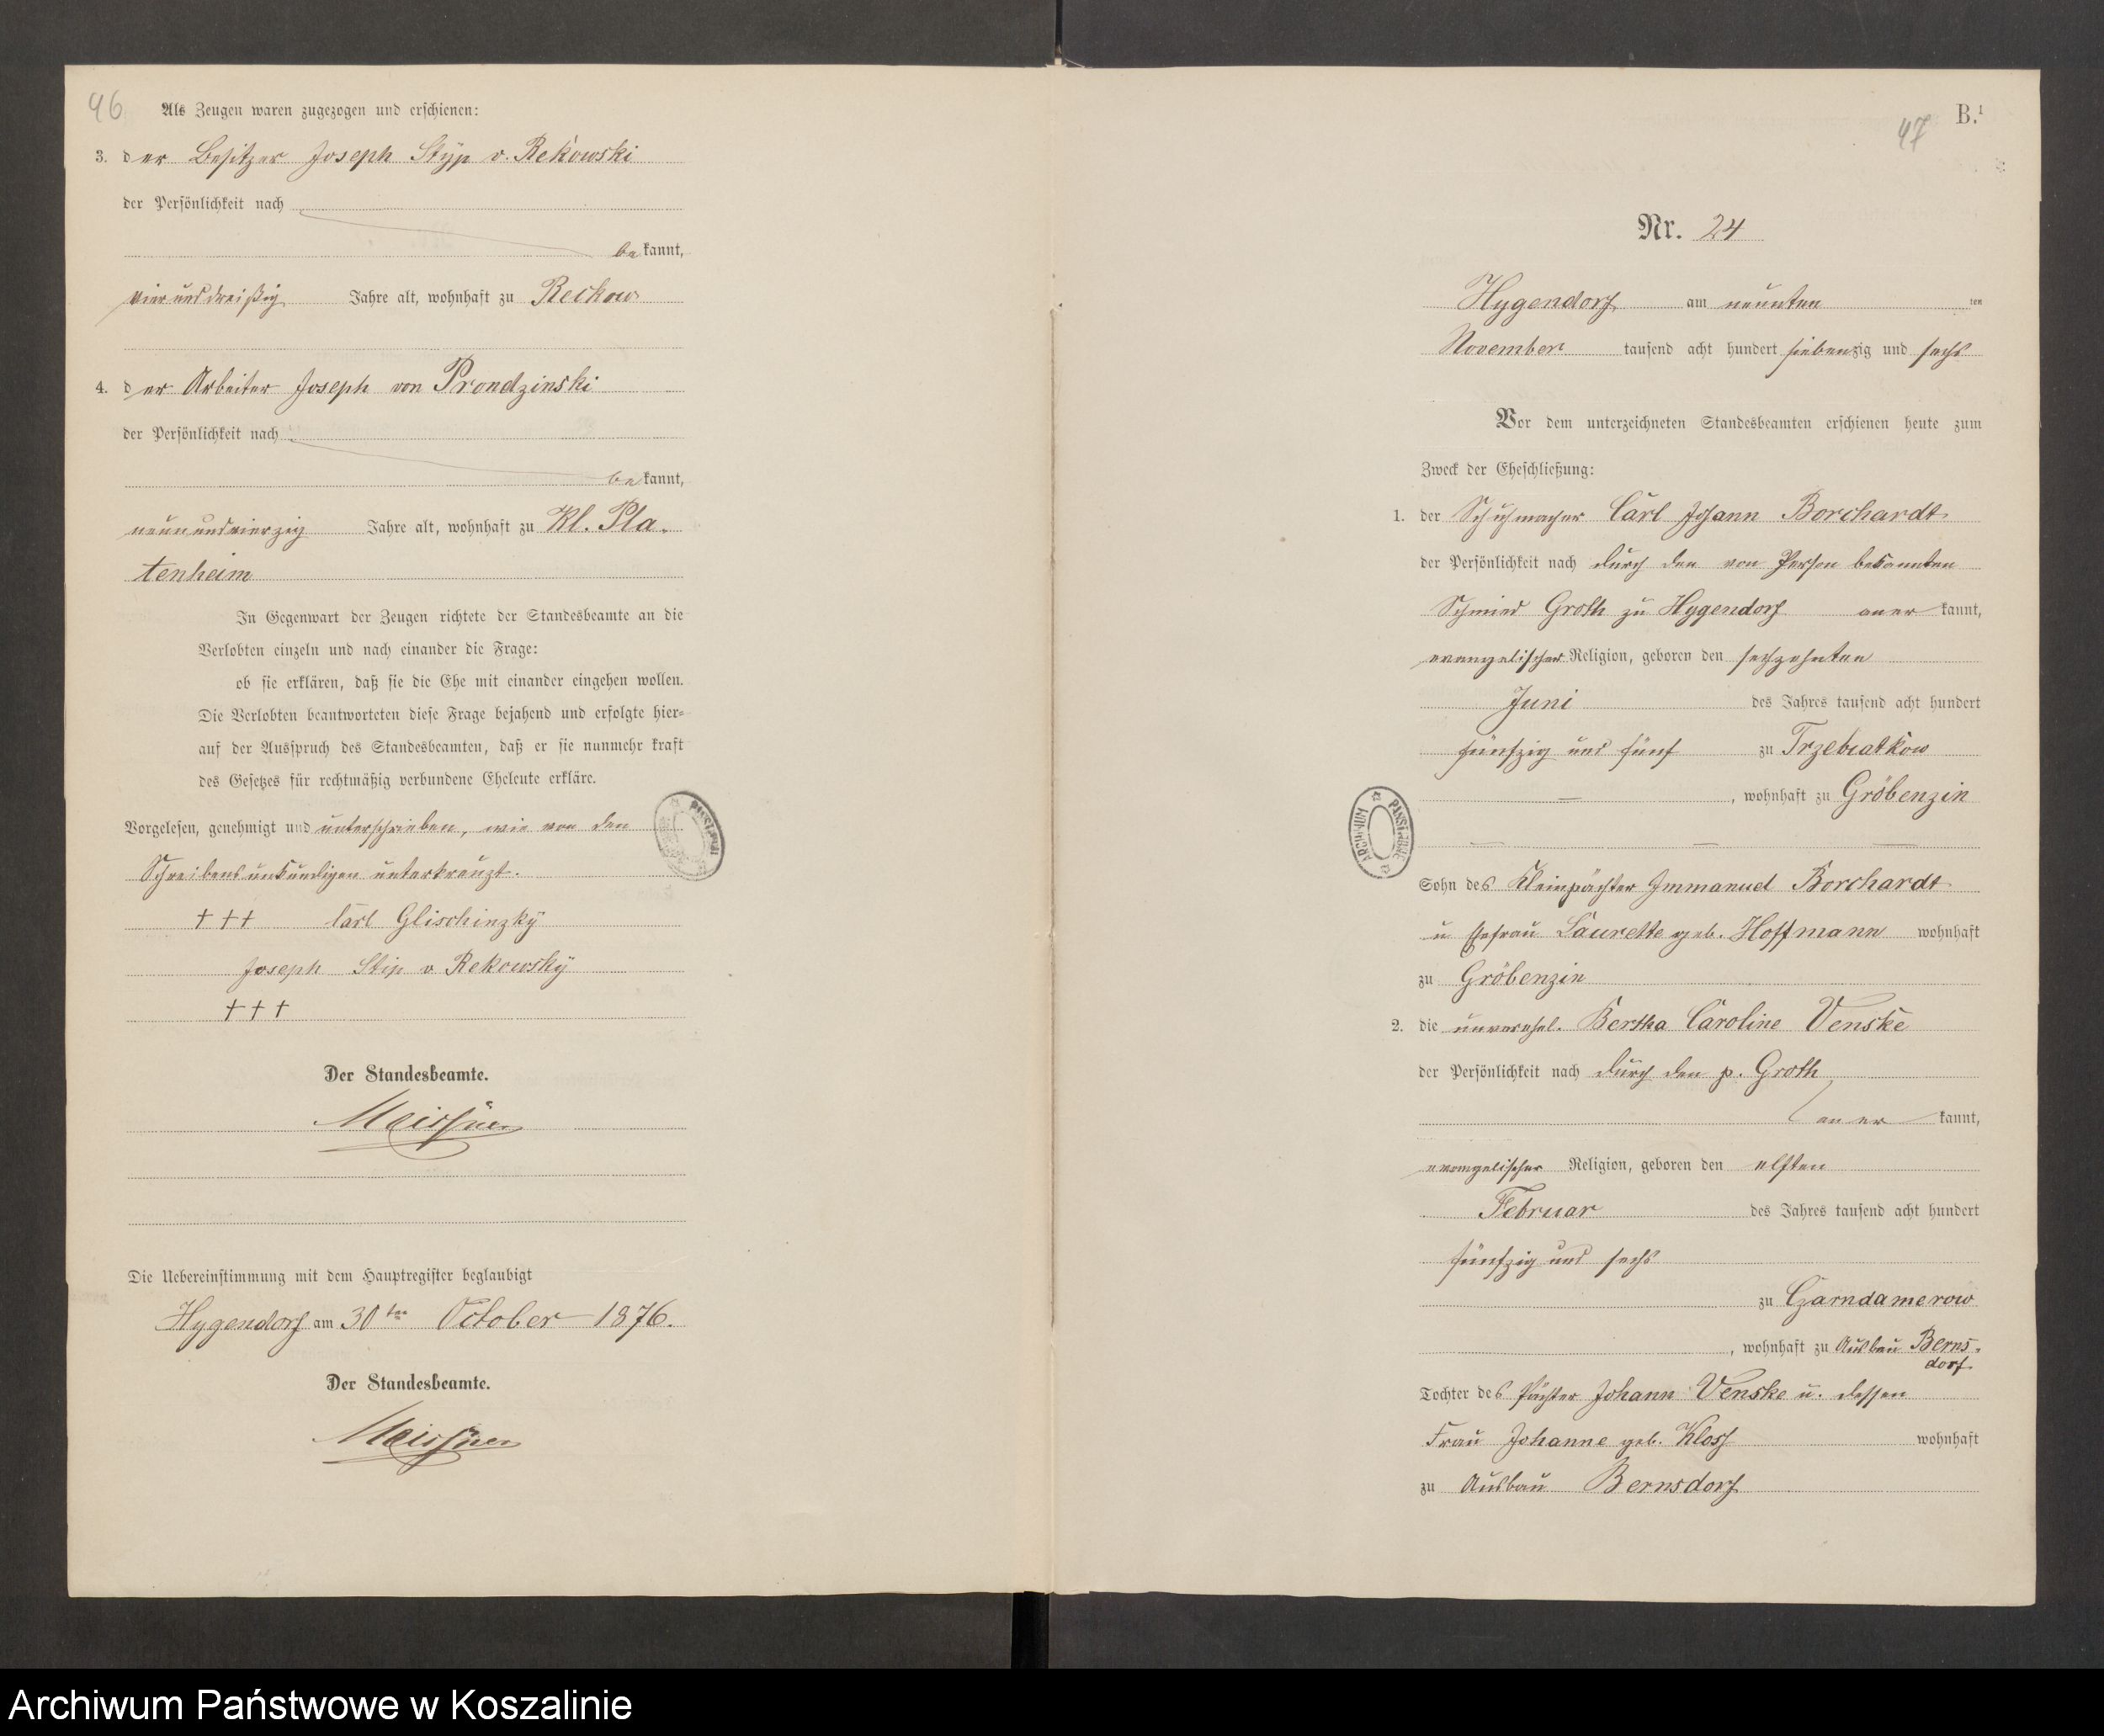 46
Als Zeugen waren zugezogen und erschienen:
3. der Besitzer Joseph Styp v. Rekowski
der Persönlichkeit nach
bekannt,
vier und dreißig Jahre alt, wohnhaft zu Reckow
4. der Arbeiter Joseph von Prondzinski
der Persönlichkeit nach
bekannt,
neunundvierzig Jahre alt, wohnhaft zu Kl. Pla-
tenheim
In Gegenwart der Zeugen richtete der Standesbeamte an die
Verlobten einzeln und nach einander die Frage:
ob sie erklären, daß sie die Ehe mit einander eingehen wollen.
Die Verlobten beantworteten diese Frage bejahend und erfolgte hier-
auf der Ausspruch des Standesbeamten, daß er sie nunmehr kraft
des Gesetzes für rechtmäßig verbundene Eheleute erkläre.
Vorgelesen, genehmigt und unterschrieben, wie von den
Schreibensunkundigen unterkreuzt.
+++ Carl Glischinzky
Joseph Stip v Rekowsky
+++
Der Standesbeamte.
Meissner
Die Uebereinstimmung mit dem Hauptregister beglaubigt
Hygendorf am 30ten October 1876.
Der Standesbeamte.
Meissner
B.¹
47
Nr. 24
Hygendorf am neunten ten
November tausend acht hundert siebenzig und sechs
Vor dem unterzeichneten Standesbeamten erschienen heute zum
Zweck der Eheschließung:
1. der Schuhmacher Carl Johann Borchardt
der Persönlichkeit nach durch den von Person bekannten
Schmied Groth zu Hygendorf anerkannt,
evangelischer Religion, geboren den sechzehnten
Juni des Jahres tausend acht hundert
fünfzig und fünf zu Trzebiatkow
, wohnhaft zu Gröbenzin
ARCHIWUM PAŃSTWOWE
Sohn des Kleinpächter Immanuel Borchardt
u Ehefrau Laurette geb. Hoffmann wohnhaft
zu Gröbenzin
2. die unverehel. Bertha Caroline Venske
der Persönlichkeit nach durch den p. Groth
anerkannt,
evangelischer Religion, geboren den elften
Februar des Jahres tausend acht hundert
fünfzig und sechs
zu Czarndamerow
, wohnhaft zu Ausbau Berns-
dorf
Tochter des Pächter Johann Venske u. dessen
Frau Johanne geb. Kloss wohnhaft
zu Ausbau Bernsdorf
Archiwum Państwowe w Koszalinie